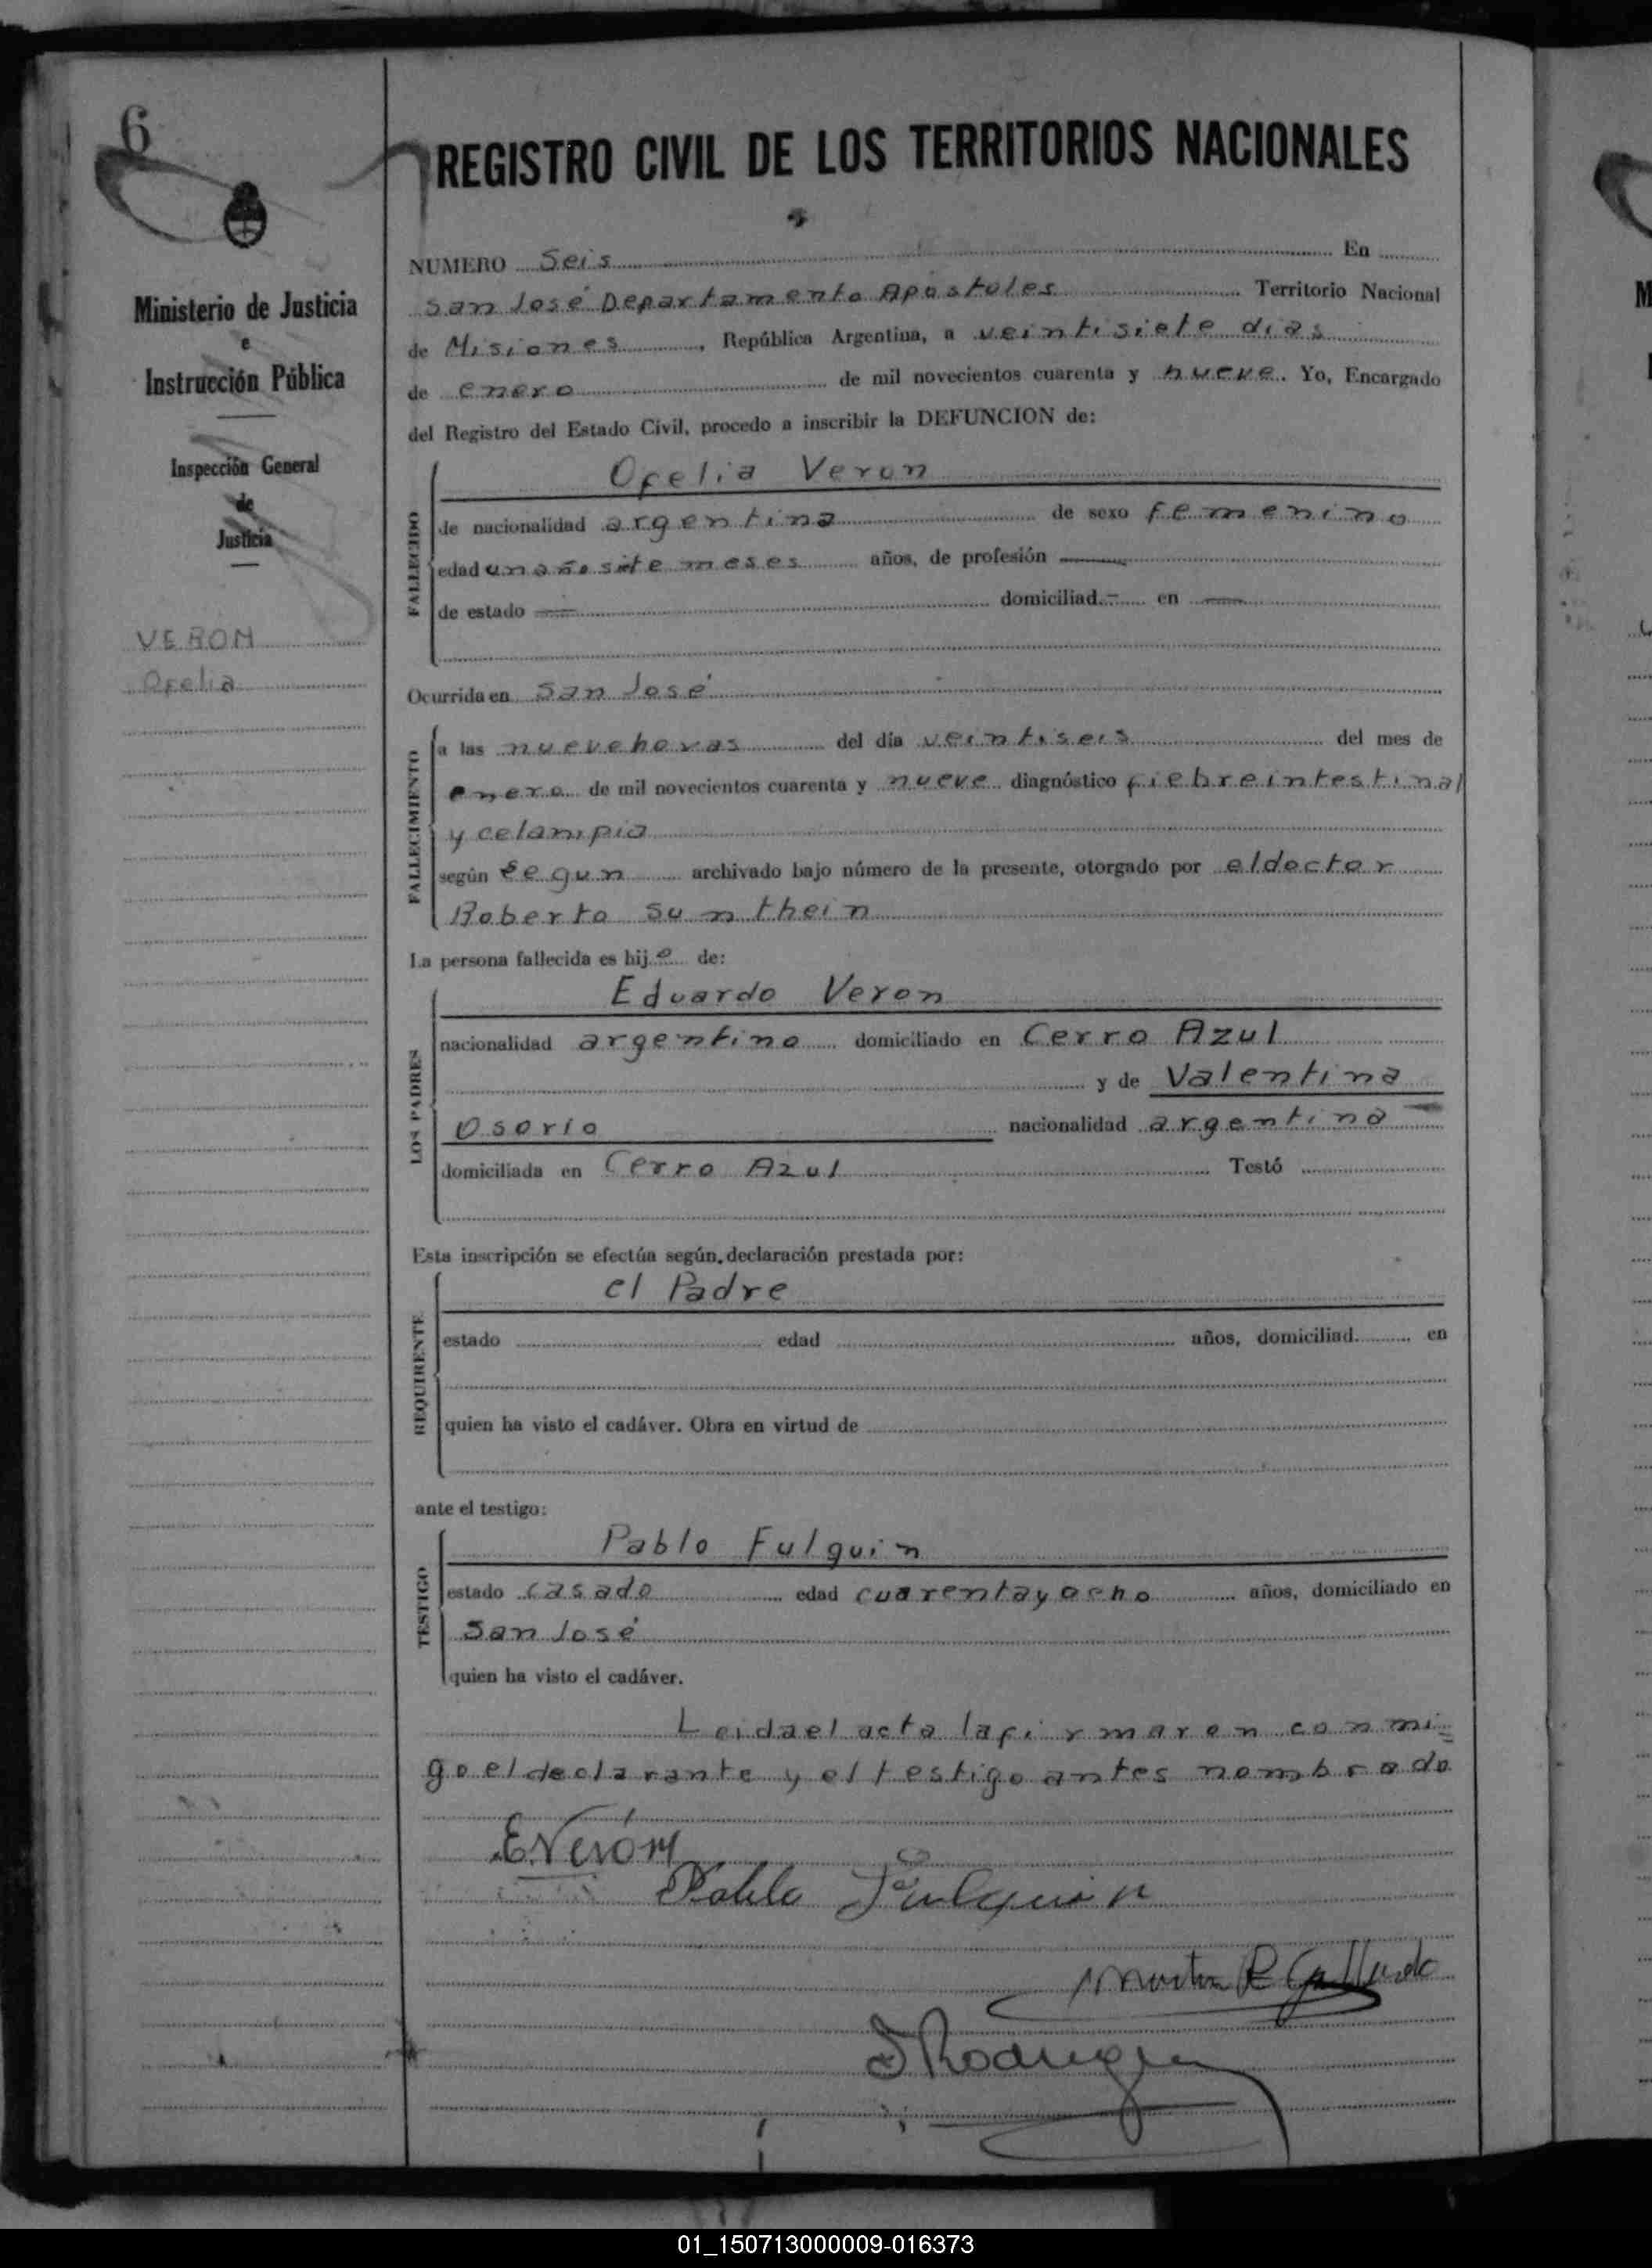 6
REGISTRO CIVIL DE LOS TERRITORIOS NACIONALES
Ministerio de Justicia
e
Instrucción Pública
Inspección General
de
Justicia
VERON
Ofelia
NUMERO Seis En
San José Departamento Apóstoles Territorio Nacional
de Misiones, República Argentina, a veintisiete dias
de enero de mil novecientos cuarenta y nueve. Yo, Encargado
del Registro del Estado Civil, procedo a inscribir la DEFUNCION de:
FALLECIDO
Ofelia Veron
de nacionalidad argentina de sexo femenino
edad un año siete meses años, de profesión —
de estado — domiciliad - en —
Ocurrida en San José
FALLECIMIENTO
a las nueve horas del día veintiseis del mes de
enero de mil novecientos cuarenta y nueve diagnóstico fiebre intestinal
y celampia
según segun archivado bajo número de la presente, otorgado por el doctor
Roberto Sunthein
La persona fallecida es hij de:
LOS PADRES
Eduardo Veron
nacionalidad argentino domiciliado en Cerro Azul
y de Valentina
Osorio nacionalidad argentina
domiciliada en Cerro Azul Testó
Esta inscripción se efectúa según declaración prestada por:
REQUIRENTE
el Padre
estado edad años, domiciliad en
quien ha visto el cadáver. Obra en virtud de
ante el testigo:
TESTIGO
Pablo Fulquin
estado casado edad cuarenta y ocho años, domiciliado en
San José
quien ha visto el cadáver.
Leida el acta la firmaron con mi=
go el declarante y el testigo antes nombrado
E Verón
Pablo Fulquin
Martin R Gallardo
Rodriguez
01_150713000009-016373